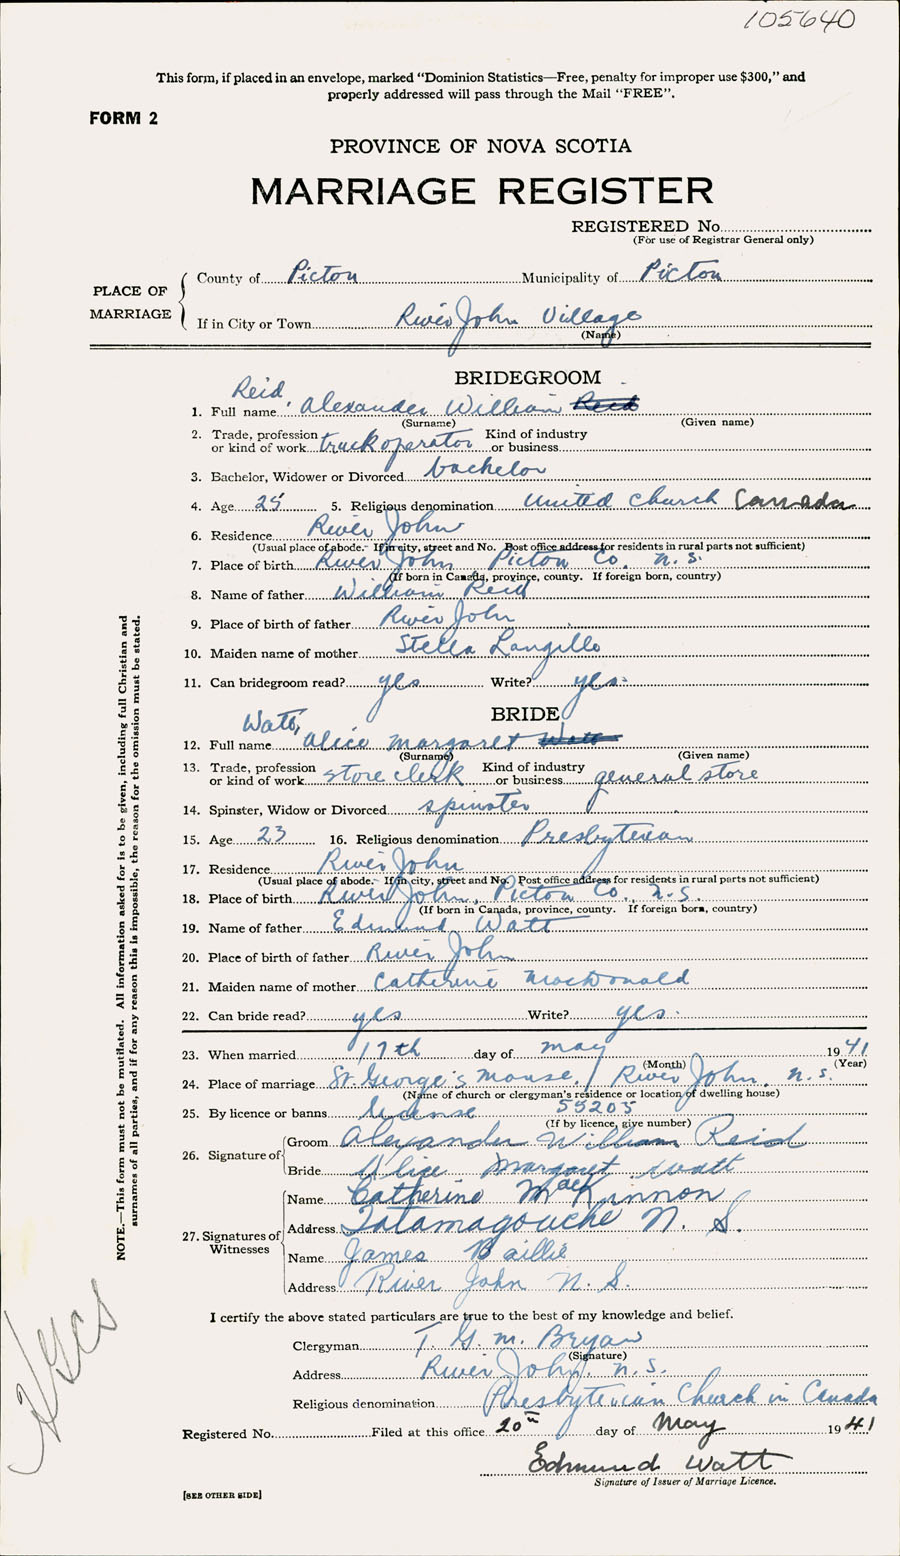 105640
This form, if placed in an envelope, marked "Dominion Statistics—Free, penalty for improper use $300," and
properly addressed will pass through the Mail "FREE".
FORM 2
PROVINCE OF NOVA SCOTIA
MARRIAGE REGISTER
REGISTERED No.
(For use of Registrar General only)
PLACE OF MARRIAGE
County of Picton Municipality of Picton
If in City or Town River John Village
(Name)
BRIDEGROOM
Reid,
1. Full name Alexander William Reid
(Surname) (Given name)
2. Trade, profession or kind of work truck operator Kind of industry or business
3. Bachelor, Widower or Divorced bachelor
4. Age 25 5. Religious denomination United Church Canada
6. Residence River John
(Usual place of abode. If in city, street and No. Post office address for residents in rural parts not sufficient)
7. Place of birth River John Picton Co. N.S.
(If born in Canada, province, county. If foreign born, country)
8. Name of father William Reid
9. Place of birth of father River John
10. Maiden name of mother Stella Langille
11. Can bridegroom read? yes Write? yes.
BRIDE
Watt,
12. Full name Alice Margaret Watt
(Surname) (Given name)
13. Trade, profession or kind of work store clerk Kind of industry or business general store
14. Spinster, Widow or Divorced spinster
15. Age 23 16. Religious denomination Presbyterian
17. Residence River John
(Usual place of abode. If in city, street and No. Post office address for residents in rural parts not sufficient)
18. Place of birth River John, Picton Co., N.S.
(If born in Canada, province, county. If foreign born, country)
19. Name of father Edmund Watt
20. Place of birth of father River John
21. Maiden name of mother Catherine MacDonald
22. Can bride read? yes Write? yes.
23. When married 17th day of May 1941
(Month) (Year)
24. Place of marriage St. George's Manse, River John, N.S.
(Name of church or clergyman's residence or location of dwelling house)
25. By licence or banns license 55205
(If by licence, give number)
26. Signature of
Groom Alexander William Reid
Bride Alice Margaret Watt
27. Signatures of Witnesses
Name Catherine MacKinnon
Address Tatamagouche N. S.
Name James Baillie
Address River John N. S.
I certify the above stated particulars are true to the best of my knowledge and belief.
Clergyman T. G. M. Bryan
(Signature)
Address River John, N.S.
Religious denomination Presbyterian Church in Canada
Registered No. Filed at this office 20th day of May 1941
Edmund Watt
Signature of Issuer of Marriage Licence.
[SEE OTHER SIDE]
NOTE.—This form must not be mutilated. All information asked for is to be given, including full Christian and
surnames of all parties, and if for any reason this is impossible, the reason for the omission must be stated.